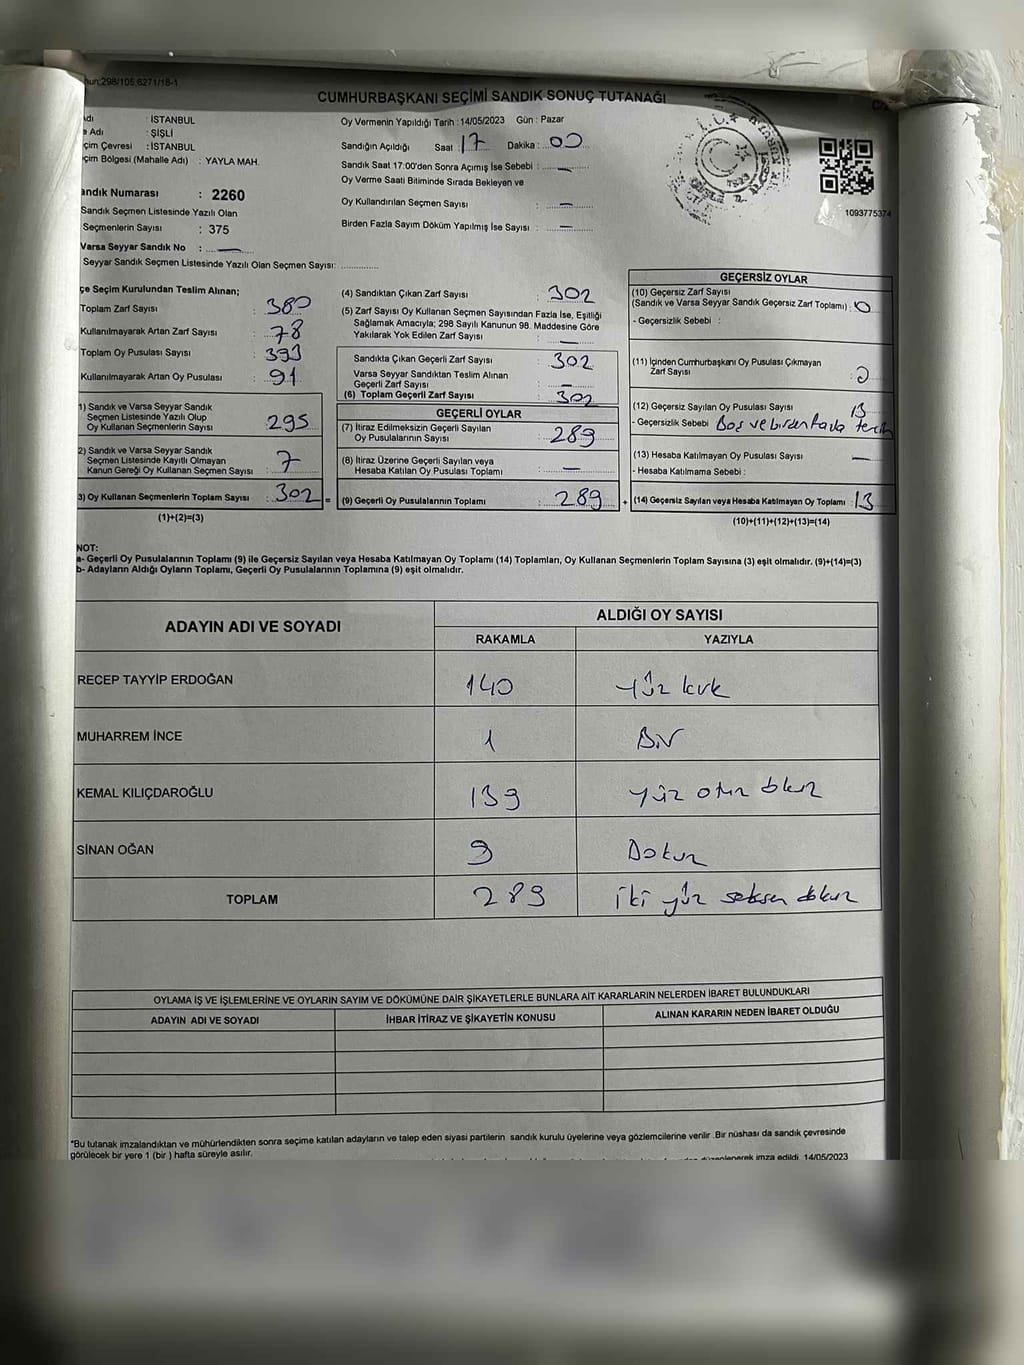 nun:298/105,6271/18-1
CUMHURBAŞKANI SEÇİMİ SANDIK SONUÇ TUTANAĞI
dı : İSTANBUL
e Adı : ŞİŞLİ
çim Çevresi : İSTANBUL
çim Bölgesi (Mahalle Adı) : YAYLA MAH.
andık Numarası : 2260
Sandık Seçmen Listesinde Yazılı Olan
Seçmenlerin Sayısı : 375
Varsa Seyyar Sandık No : —
Seyyar Sandık Seçmen Listesinde Yazılı Olan Seçmen Sayısı: ...............
Oy Vermenin Yapıldığı Tarih : 14/05/2023 Gün : Pazar
Sandığın Açıldığı Saat : 17 Dakika : 00
Sandık Saat 17:00'den Sonra Açımış İse Sebebi : —
Oy Verme Saati Bitiminde Sırada Bekleyen ve
Oy Kullandırılan Seçmen Sayısı : —
Birden Fazla Sayım Döküm Yapılmış İse Sayısı : —
1093775374
çe Seçim Kurulundan Teslim Alınan;
Toplam Zarf Sayısı : 380
Kullanılmayarak Artan Zarf Sayısı : 78
Toplam Oy Pusulası Sayısı : 393
Kullanılmayarak Artan Oy Pusulası : 91
1) Sandık ve Varsa Seyyar Sandık
Seçmen Listesinde Yazılı Olup
Oy Kullanan Seçmenlerin Sayısı : 295
2) Sandık ve Varsa Seyyar Sandık
Seçmen Listesinde Kayıtlı Olmayan
Kanun Gereği Oy Kullanan Seçmen Sayısı : 7
3) Oy Kullanan Seçmenlerin Toplam Sayısı : 302 =
(1)+(2)=(3)
(4) Sandıktan Çıkan Zarf Sayısı : 302
(5) Zarf Sayısı Oy Kullanan Seçmen Sayısından Fazla İse, Eşitliği
Sağlamak Amacıyla; 298 Sayılı Kanunun 98. Maddesine Göre
Yakılarak Yok Edilen Zarf Sayısı : —
Sandıkta Çıkan Geçerli Zarf Sayısı : 302
Varsa Seyyar Sandıktan Teslim Alınan
Geçerli Zarf Sayısı : —
(6) Toplam Geçerli Zarf Sayısı : 302
GEÇERLİ OYLAR
(7) İtiraz Edilmeksizin Geçerli Sayılan
Oy Pusulalarının Sayısı : 289
(8) İtiraz Üzerine Geçerli Sayılan veya
Hesaba Katılan Oy Pusulası Toplamı : —
(9) Geçerli Oy Pusulalarının Toplamı : 289 +
GEÇERSİZ OYLAR
(10) Geçersiz Zarf Sayısı
(Sandık ve Varsa Seyyar Sandık Geçersiz Zarf Toplamı) : 0
- Geçersizlik Sebebi :
(11) İçinden Cumhurbaşkanı Oy Pusulası Çıkmayan
Zarf Sayısı : 0
(12) Geçersiz Sayılan Oy Pusulası Sayısı : 13
- Geçersizlik Sebebi Boş ve birden fazla tercih
(13) Hesaba Katılmayan Oy Pusulası Sayısı —
- Hesaba Katılmama Sebebi :
(14) Geçersiz Sayılan veya Hesaba Katılmayan Oy Toplamı : 13
(10)+(11)+(12)+(13)=(14)
NOT:
a- Geçerli Oy Pusulalarının Toplamı (9) ile Geçersiz Sayılan veya Hesaba Katılmayan Oy Toplamı (14) Toplamları, Oy Kullanan Seçmenlerin Toplam Sayısına (3) eşit olmalıdır. (9)+(14)=(3)
b- Adayların Aldığı Oyların Toplamı, Geçerli Oy Pusulalarının Toplamına (9) eşit olmalıdır.
ADAYIN ADI VE SOYADI
ALDIĞI OY SAYISI
RAKAMLA YAZIYLA
RECEP TAYYİP ERDOĞAN 140 yüz kırk
MUHARREM İNCE 1 Bir
KEMAL KILIÇDAROĞLU 139 yüz otuz dokuz
SİNAN OĞAN 9 Dokuz
TOPLAM 289 iki yüz seksen dokuz
OYLAMA İŞ VE İŞLEMLERİNE VE OYLARIN SAYIM VE DÖKÜMÜNE DAİR ŞİKAYETLERLE BUNLARA AİT KARARLARIN NELERDEN İBARET BULUNDUKLARI
ADAYIN ADI VE SOYADI İHBAR İTİRAZ VE ŞİKAYETİN KONUSU ALINAN KARARIN NEDEN İBARET OLDUĞU
*Bu tutanak imzalandıktan ve mühürlendikten sonra seçime katılan adayların ve talep eden siyasi partilerin sandık kurulu üyelerine veya gözlemcilerine verilir. Bir nüshası da sandık çevresinde
görülecek bir yere 1 (bir ) hafta süreyle asılır.
düzenlenerek imza edildi. 14/05/2023